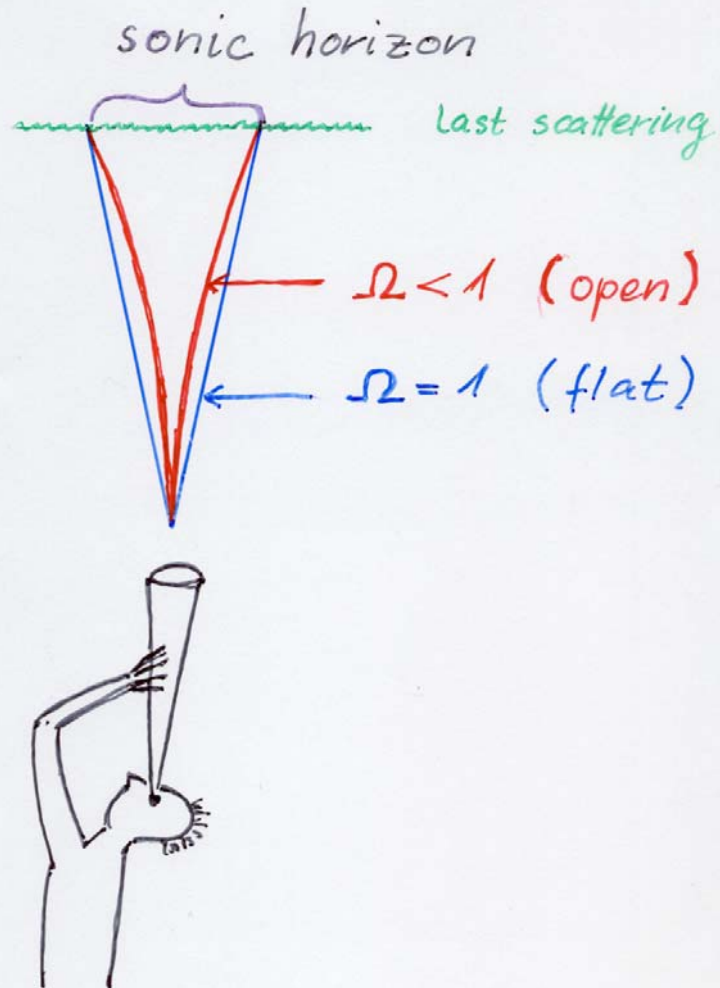 sonic horizon
last scattering
Ω < 1 (open)
Ω = 1 (flat)